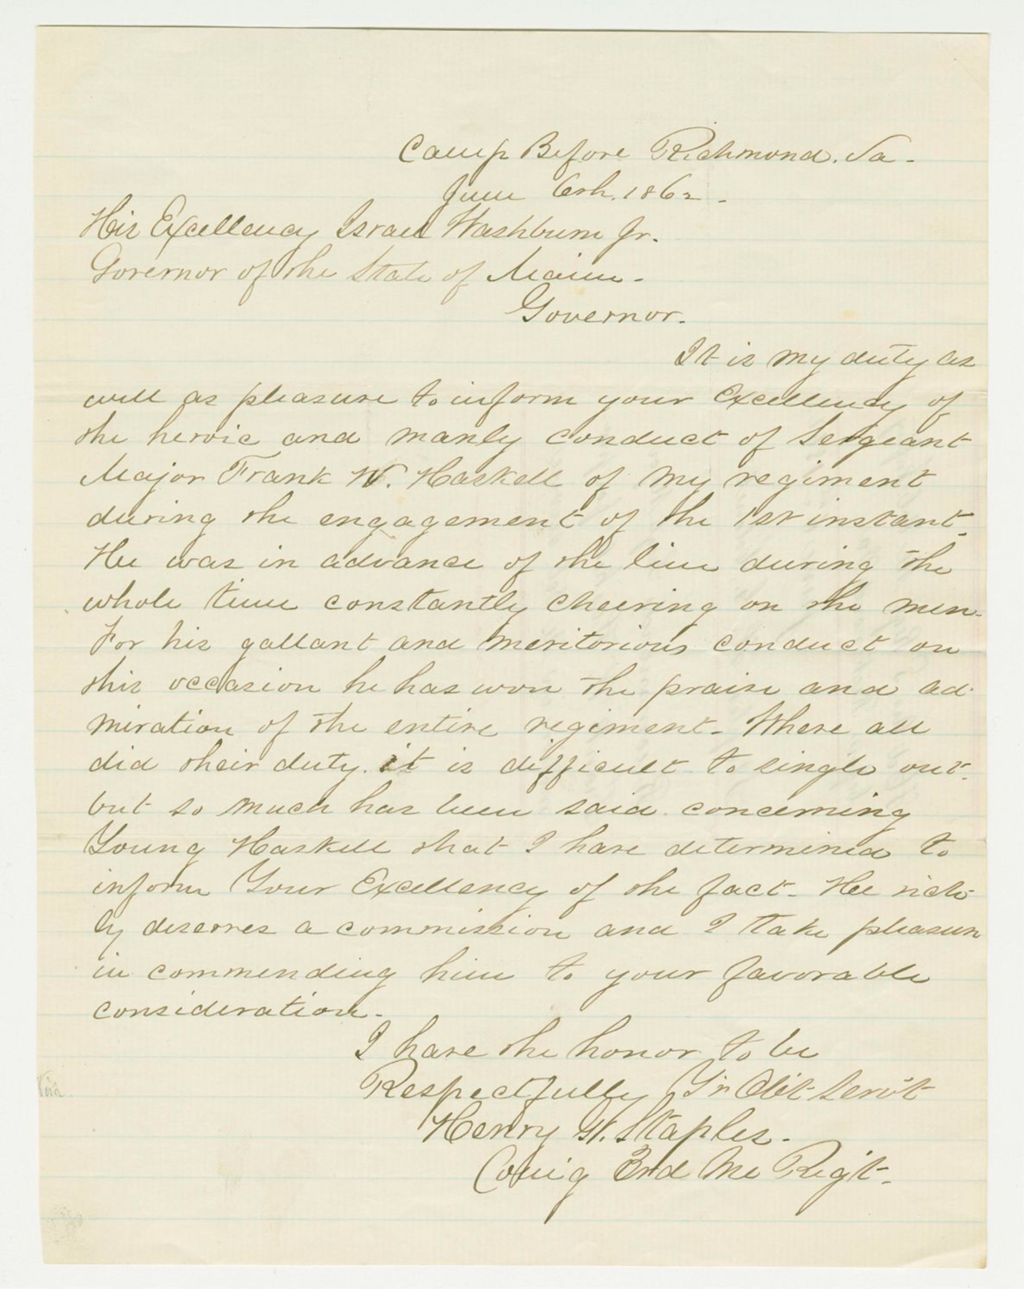 Camp Before Richmond. Va.
June 6th. 1862.
His Excellency Israel Washburn Jr.
Governor of the State of Maine.
Governor.
It is my duty as
well as pleasure to inform your Excellency of
the heroic and manly conduct of Sergeant
Major Frank W. Haskell of my regiment
during the engagement of the 1st instant.
He was in advance of the line during the
whole time constantly cheering on the men.
For his gallant and meritorious conduct on
this occasion he has won the praise and ad-
miration of the entire regiment. Where all
did their duty it is difficult to single out.
but so much has been said concerning
Young Haskell that I have determined to
inform Your Excellency of the fact. He rich-
ly deserves a commission and I take pleasure
in commending him to your favorable
consideration.
I have the honor to be
Respectfully Yr Obt Serv't
Henry G. Staples.
Com'g 3rd Me Reg't.